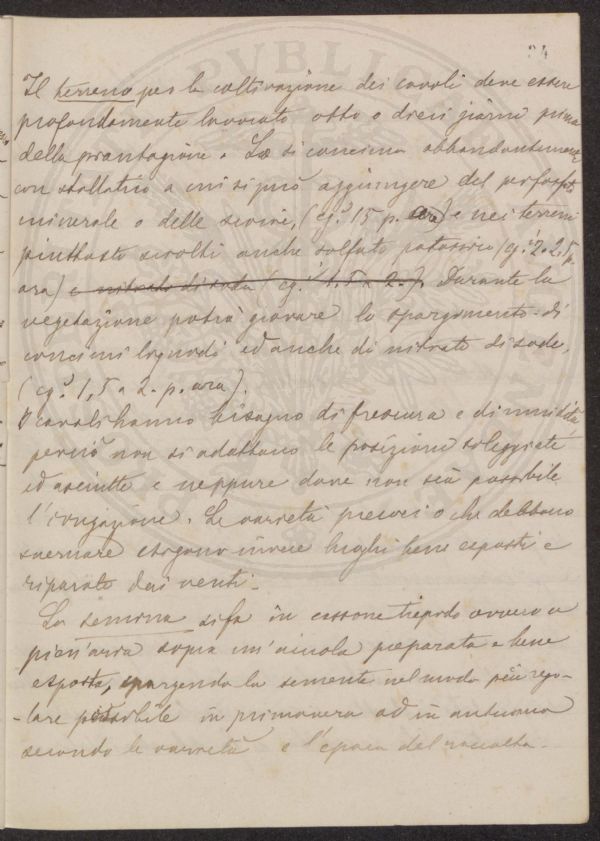 24
Il terreno per la coltivazione dei cavoli deve essere
profondamente lavorato otto o dieci giorni prima
della piantagione. Lo si concima abbondantemente
con stallatico a cui si può aggiungere del perfosfato
minerale o delle scorie, (cg.i 15 p. ara) e nei terreni
piuttosto sciolti anche solfato potassico (cg.i 2-2.5 p.
ara) e nitrato di soda (cg.i 1.5 a 2.). Durante la
vegetazione potrà giovare lo spargimento di
concimi liquidi ed anche di nitrato di soda,
(cg.i 1,5 a 2. p. ara).
I cavoli hanno bisogno di frescura e di umidità
perciò non si adattano le posizioni soleggiate
ed asciutte e neppure dove non sia possibile
l'irrigazione. Le varietà precoci o che debbono
svernare esigono invece luoghi bene esposti e
riparati dai venti.
La semina si fa in cassone tiepido ovvero a
pien'aria sopra un'aiuola preparata e bene
esposta, spargendo la semente nel modo più rego-
-lare possibile in primavera od in autunno
secondo le varietà e l'epoca del raccolto.